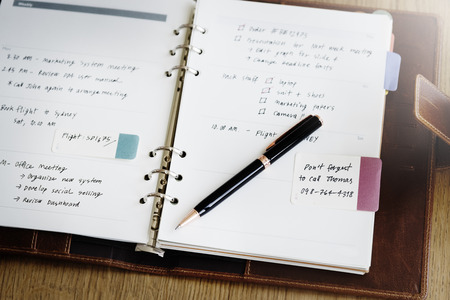 Weekly
8:30 AM - Marketing system meeting
- Review PPS user manual
- Call John again to arrange meeting
Book flight to Sydney
Sat, 10.00 AM
Flight SP1696
- Office Meeting
→ Organize new system
→ Develop social selling
→ Review Dashboard
Order
for next week meeting
→ graph for slide 6
→ Change headline
Pack stuffs
laptop
suit + shoes
marketing papers
camera
10.00 AM - Flight
Don't forget
to call Thomas
098-764-4318